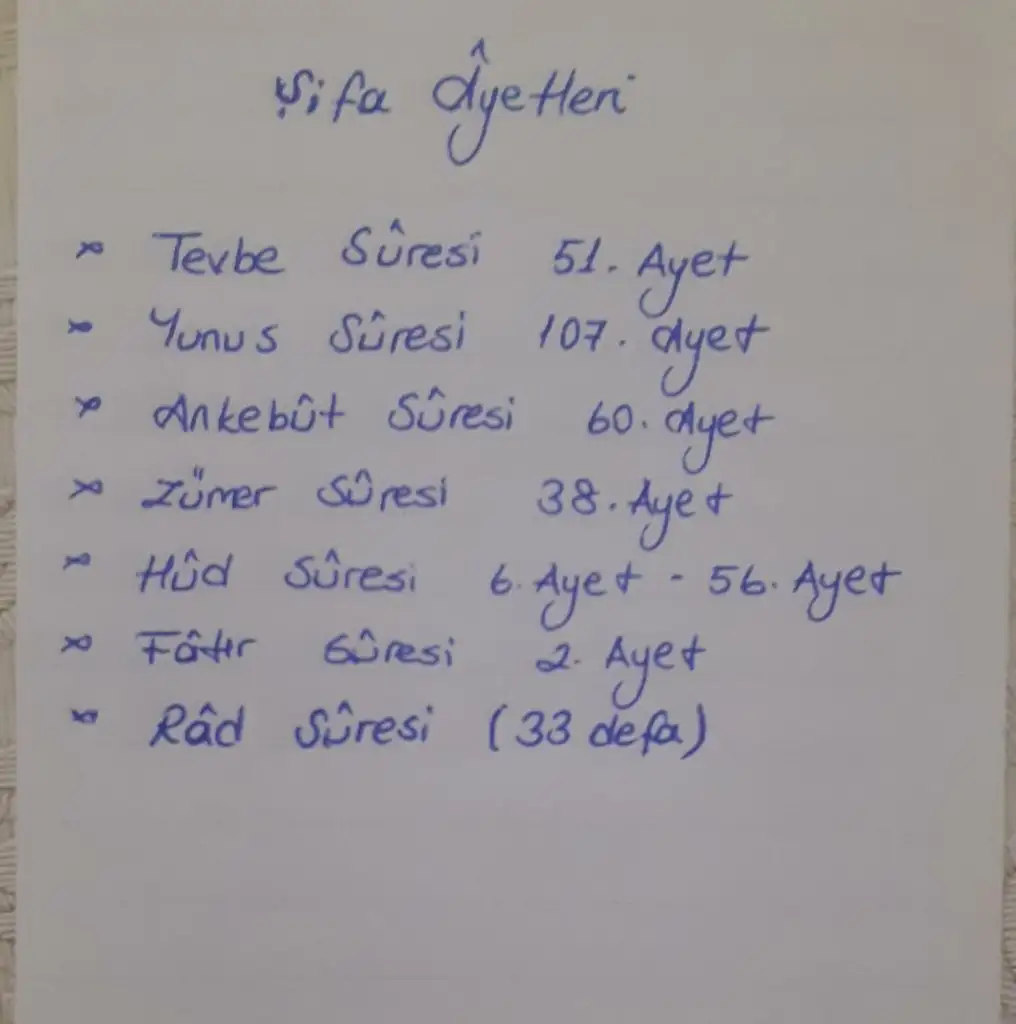 Şifa Âyetleri
* Tevbe Sûresi 51. Ayet
* Yunus Sûresi 107. Ayet
* Ankebût Sûresi 60. Ayet
* Zümer Sûresi 38. Ayet
* Hûd Sûresi 6. Ayet - 56. Ayet
* Fâtır Sûresi 2. Ayet
* Râd Sûresi (33 defa)